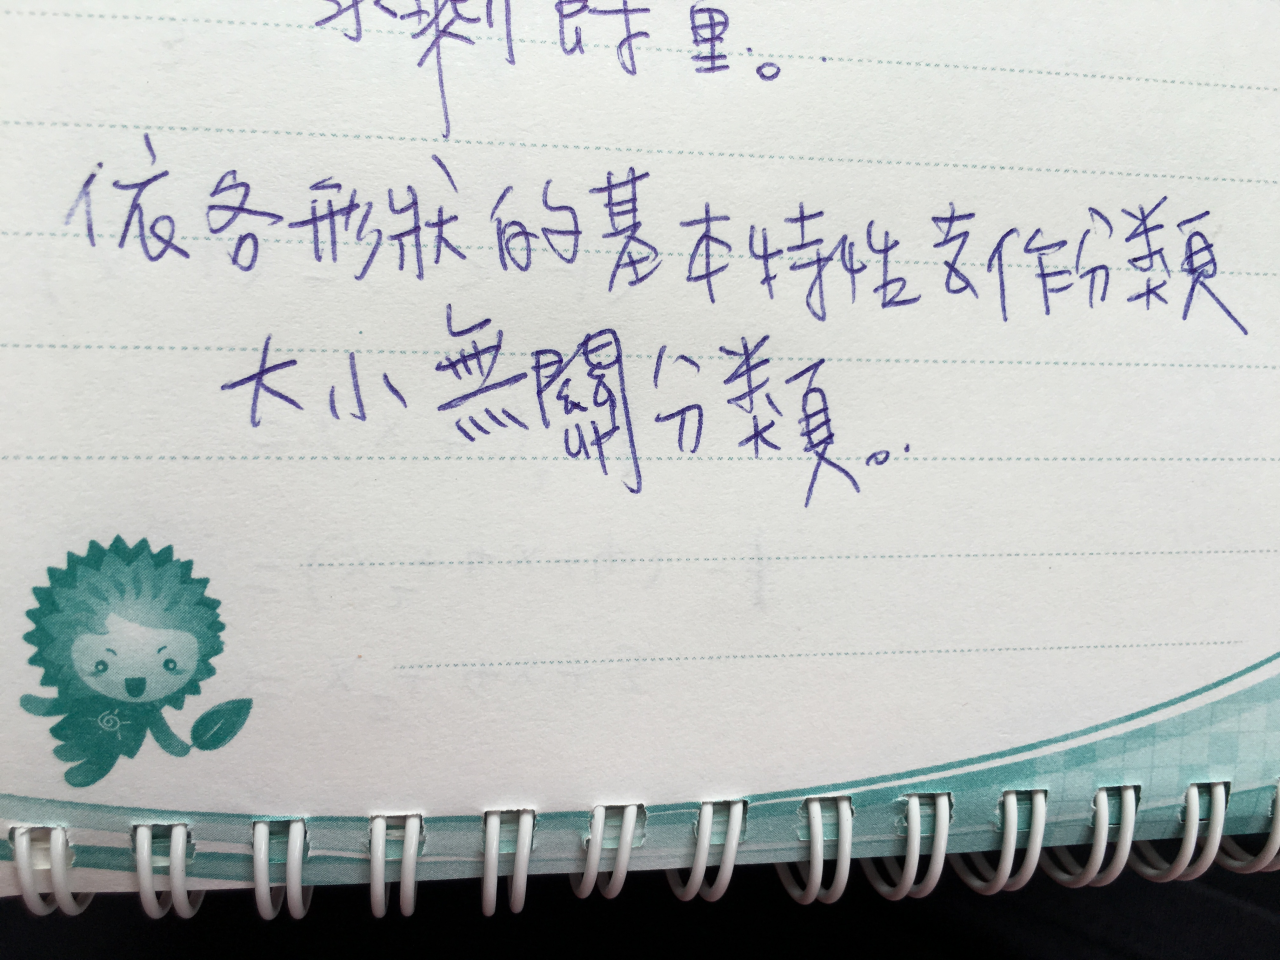 求剩餘量。
依各形狀的基本特性去作分類
大小無關分類。